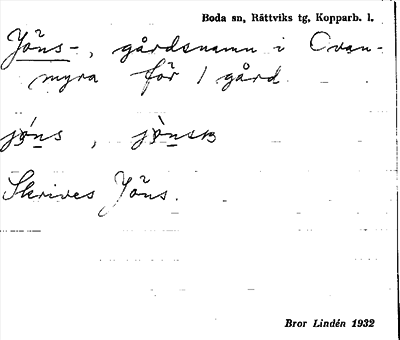 Boda sn, Rättviks tg, Kopparb. l.
Jöns-, gårdsnamn i Ovan-
myra för 1 gård
Skrives Jöns.
Bror Lindén 1932